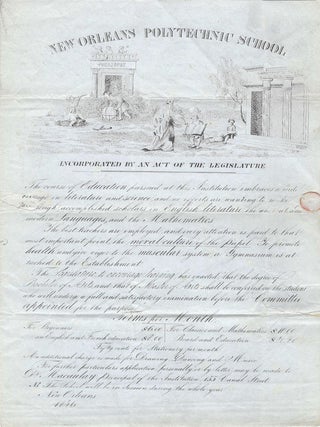 NEW ORLEANS POLYTECHNIC SCHOOL
INCORPORATED BY AN ACT OF THE LEGISLATURE
The course of Education pursued at this Institution embraces a wide
range in literature and science and no efforts are wanting to
accomplished scholars in English literature the
modern Languages, and the Mathematics.
The best teachers are employed and every attention is paid to that
most important point the moral culture of the pupil. To promote
health and give vigor to the muscular system a Gymnasium is at-
tached to the Establishment.
The Legislature to encourage learning has enacted that the degree of
Bachelor of Arts and that of Master of Arts shall be conferred on the students
who will undergo a full and satisfactory examination before the Committee
appointed for the purpose.
Terms per Month.
For Beginners For Classics and Mathematics
English and French education $6.00 Board and Education
Fifty cents for Stationery per month
An additional charge is made for Drawing Dancing and Music
For further particulars application personally or by letter may be made to
Macaulay Principal of the Institution Canal Street
The School will be in Session during the whole year.
New Orleans